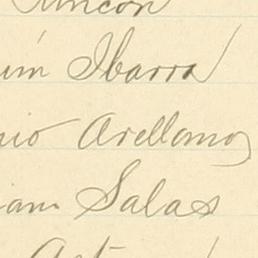 Rincón
ín Ibarra
nio Arellano
iam Salas